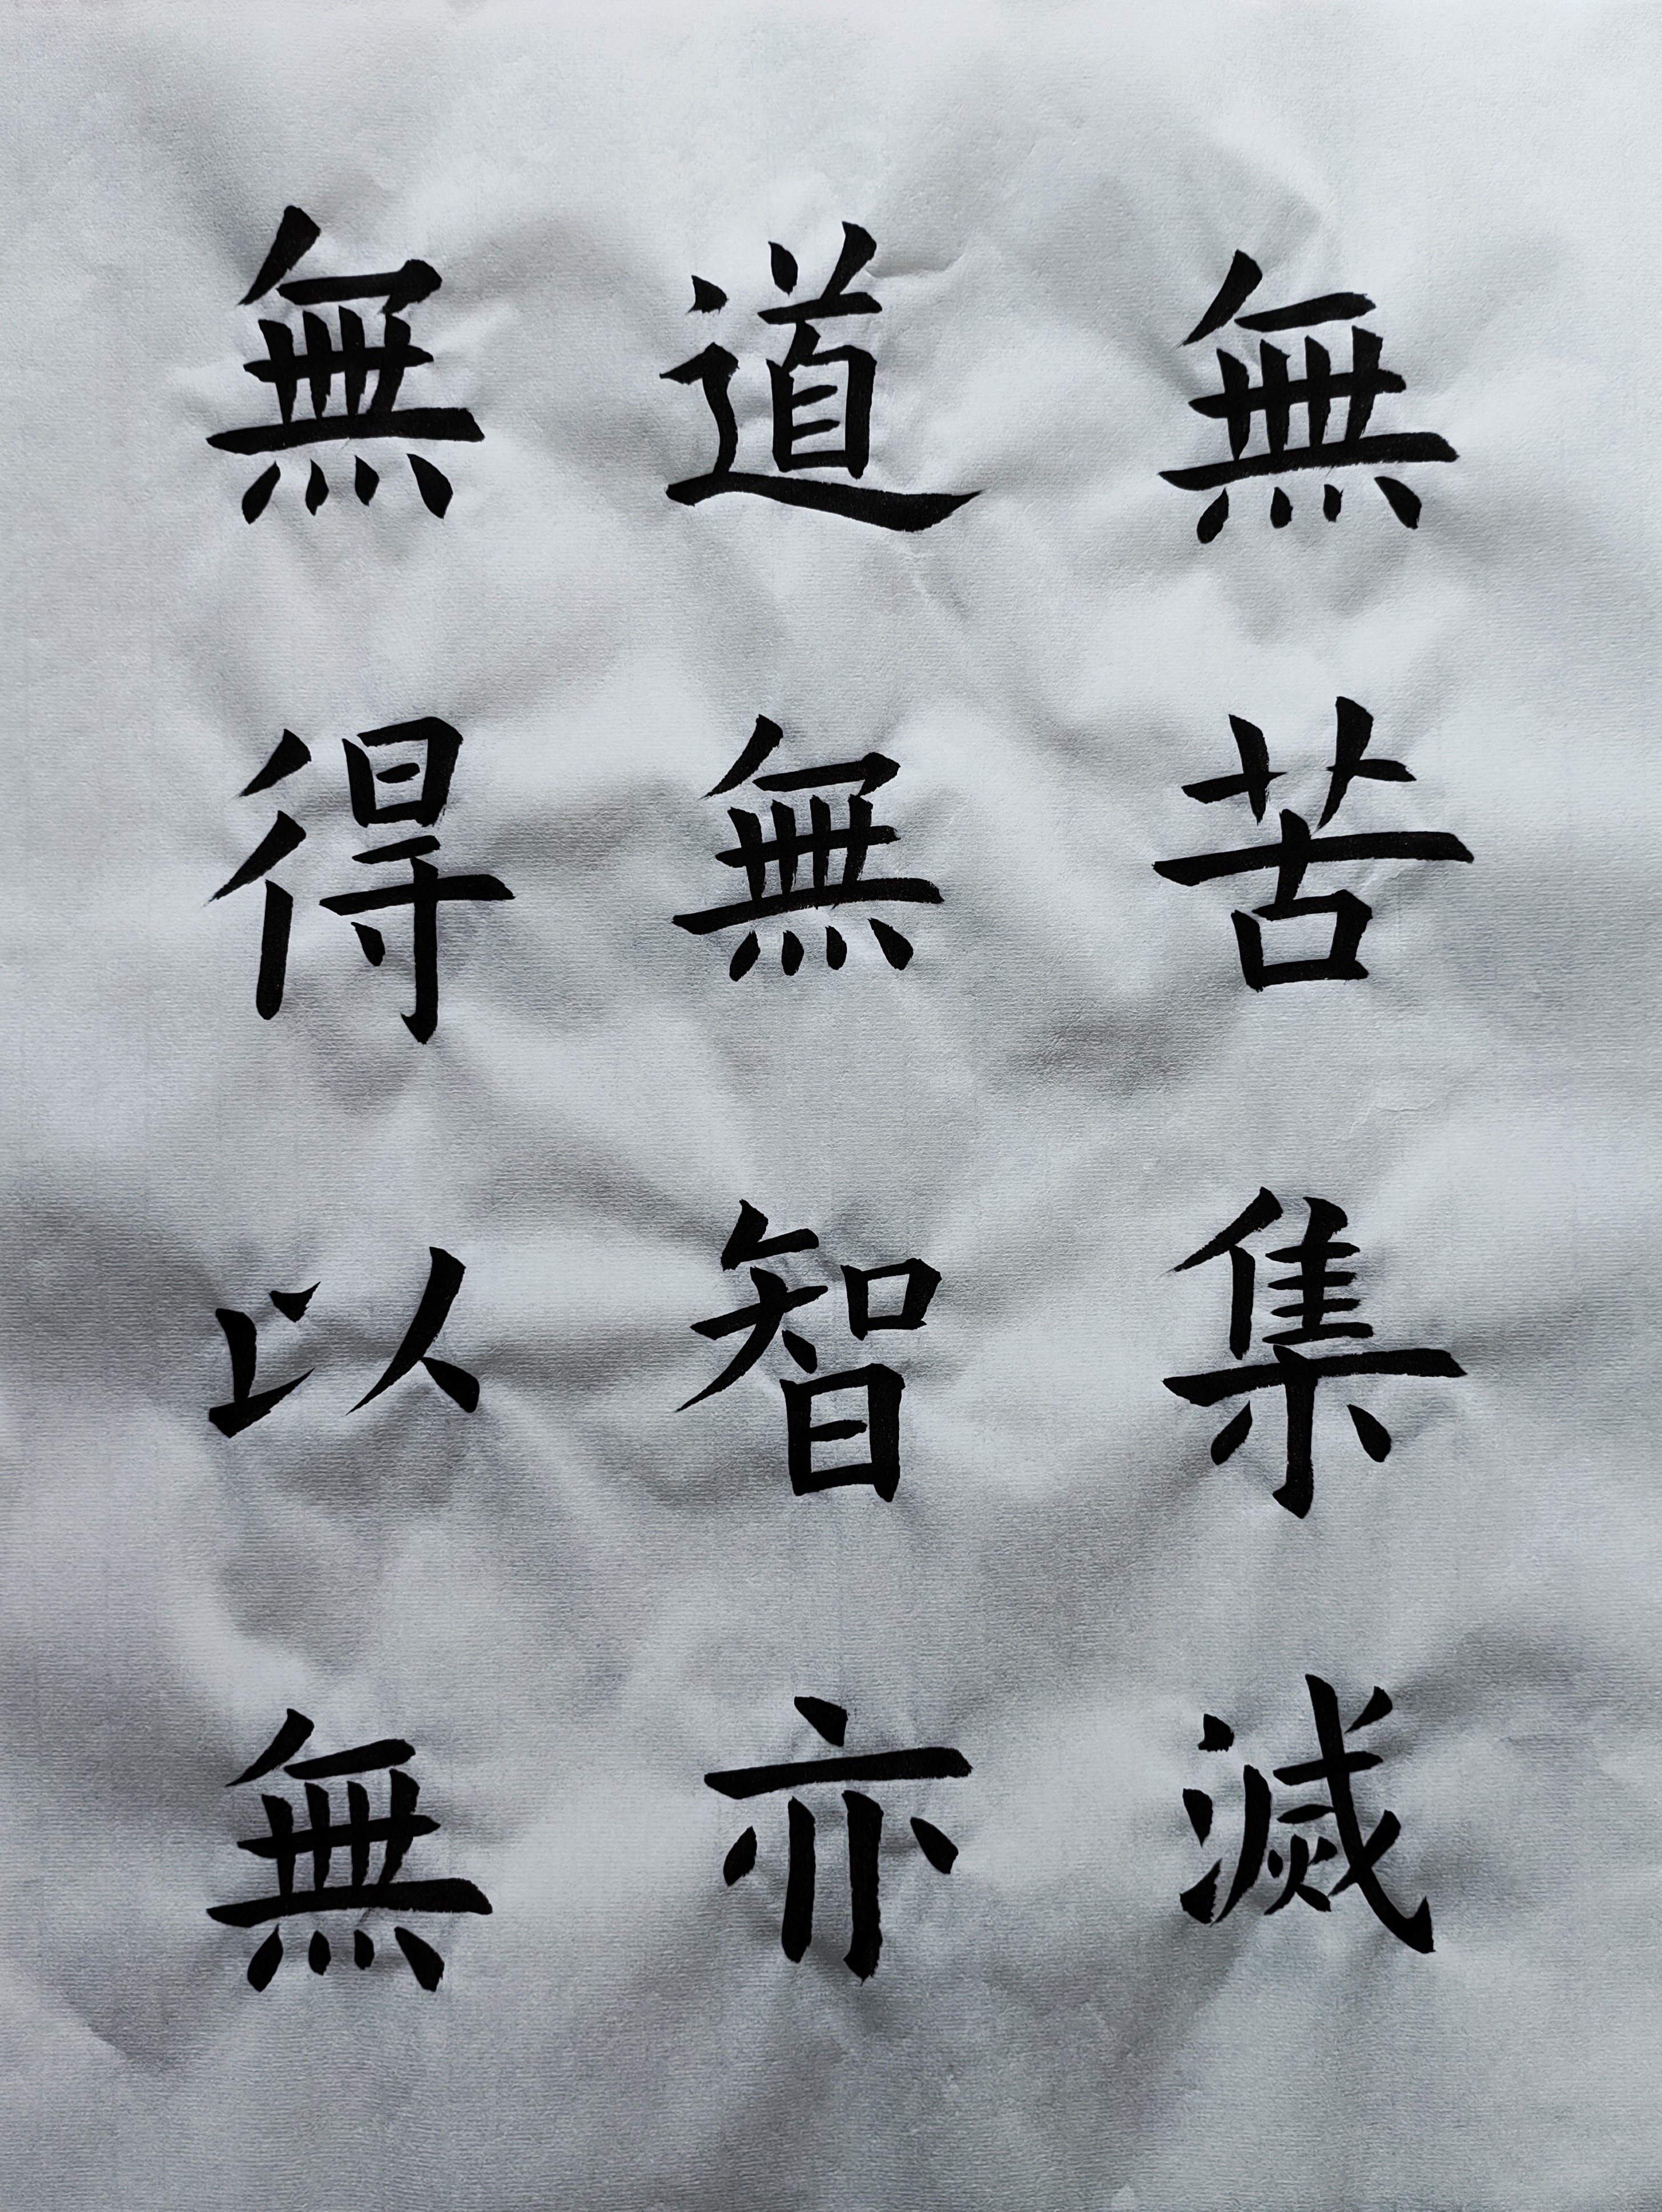 無苦集滅
道無智亦
無得以無